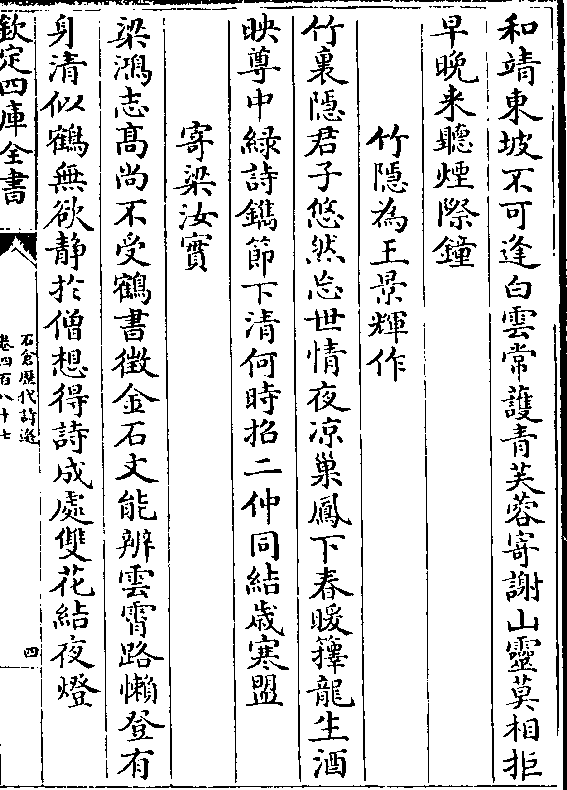 和靖東坡不可逢白雲常護青芙蓉寄謝山靈莫相拒
早晚来聽煙際鐘
竹隱為王景輝作
竹裏隱君子悠然忘世情夜凉巢鳳下春暖籜龍生酒
映尊中緑詩鐫節下清何時招二仲同結歳寒盟
寄梁汝實
梁鴻志髙尚不受鶴書徴金石文能辨雲霄路懶登有
身清似鶴無欲静於僧想得詩成處雙花結夜燈
欽定四庫全書
石倉歴代詩選
卷四百八十七
四